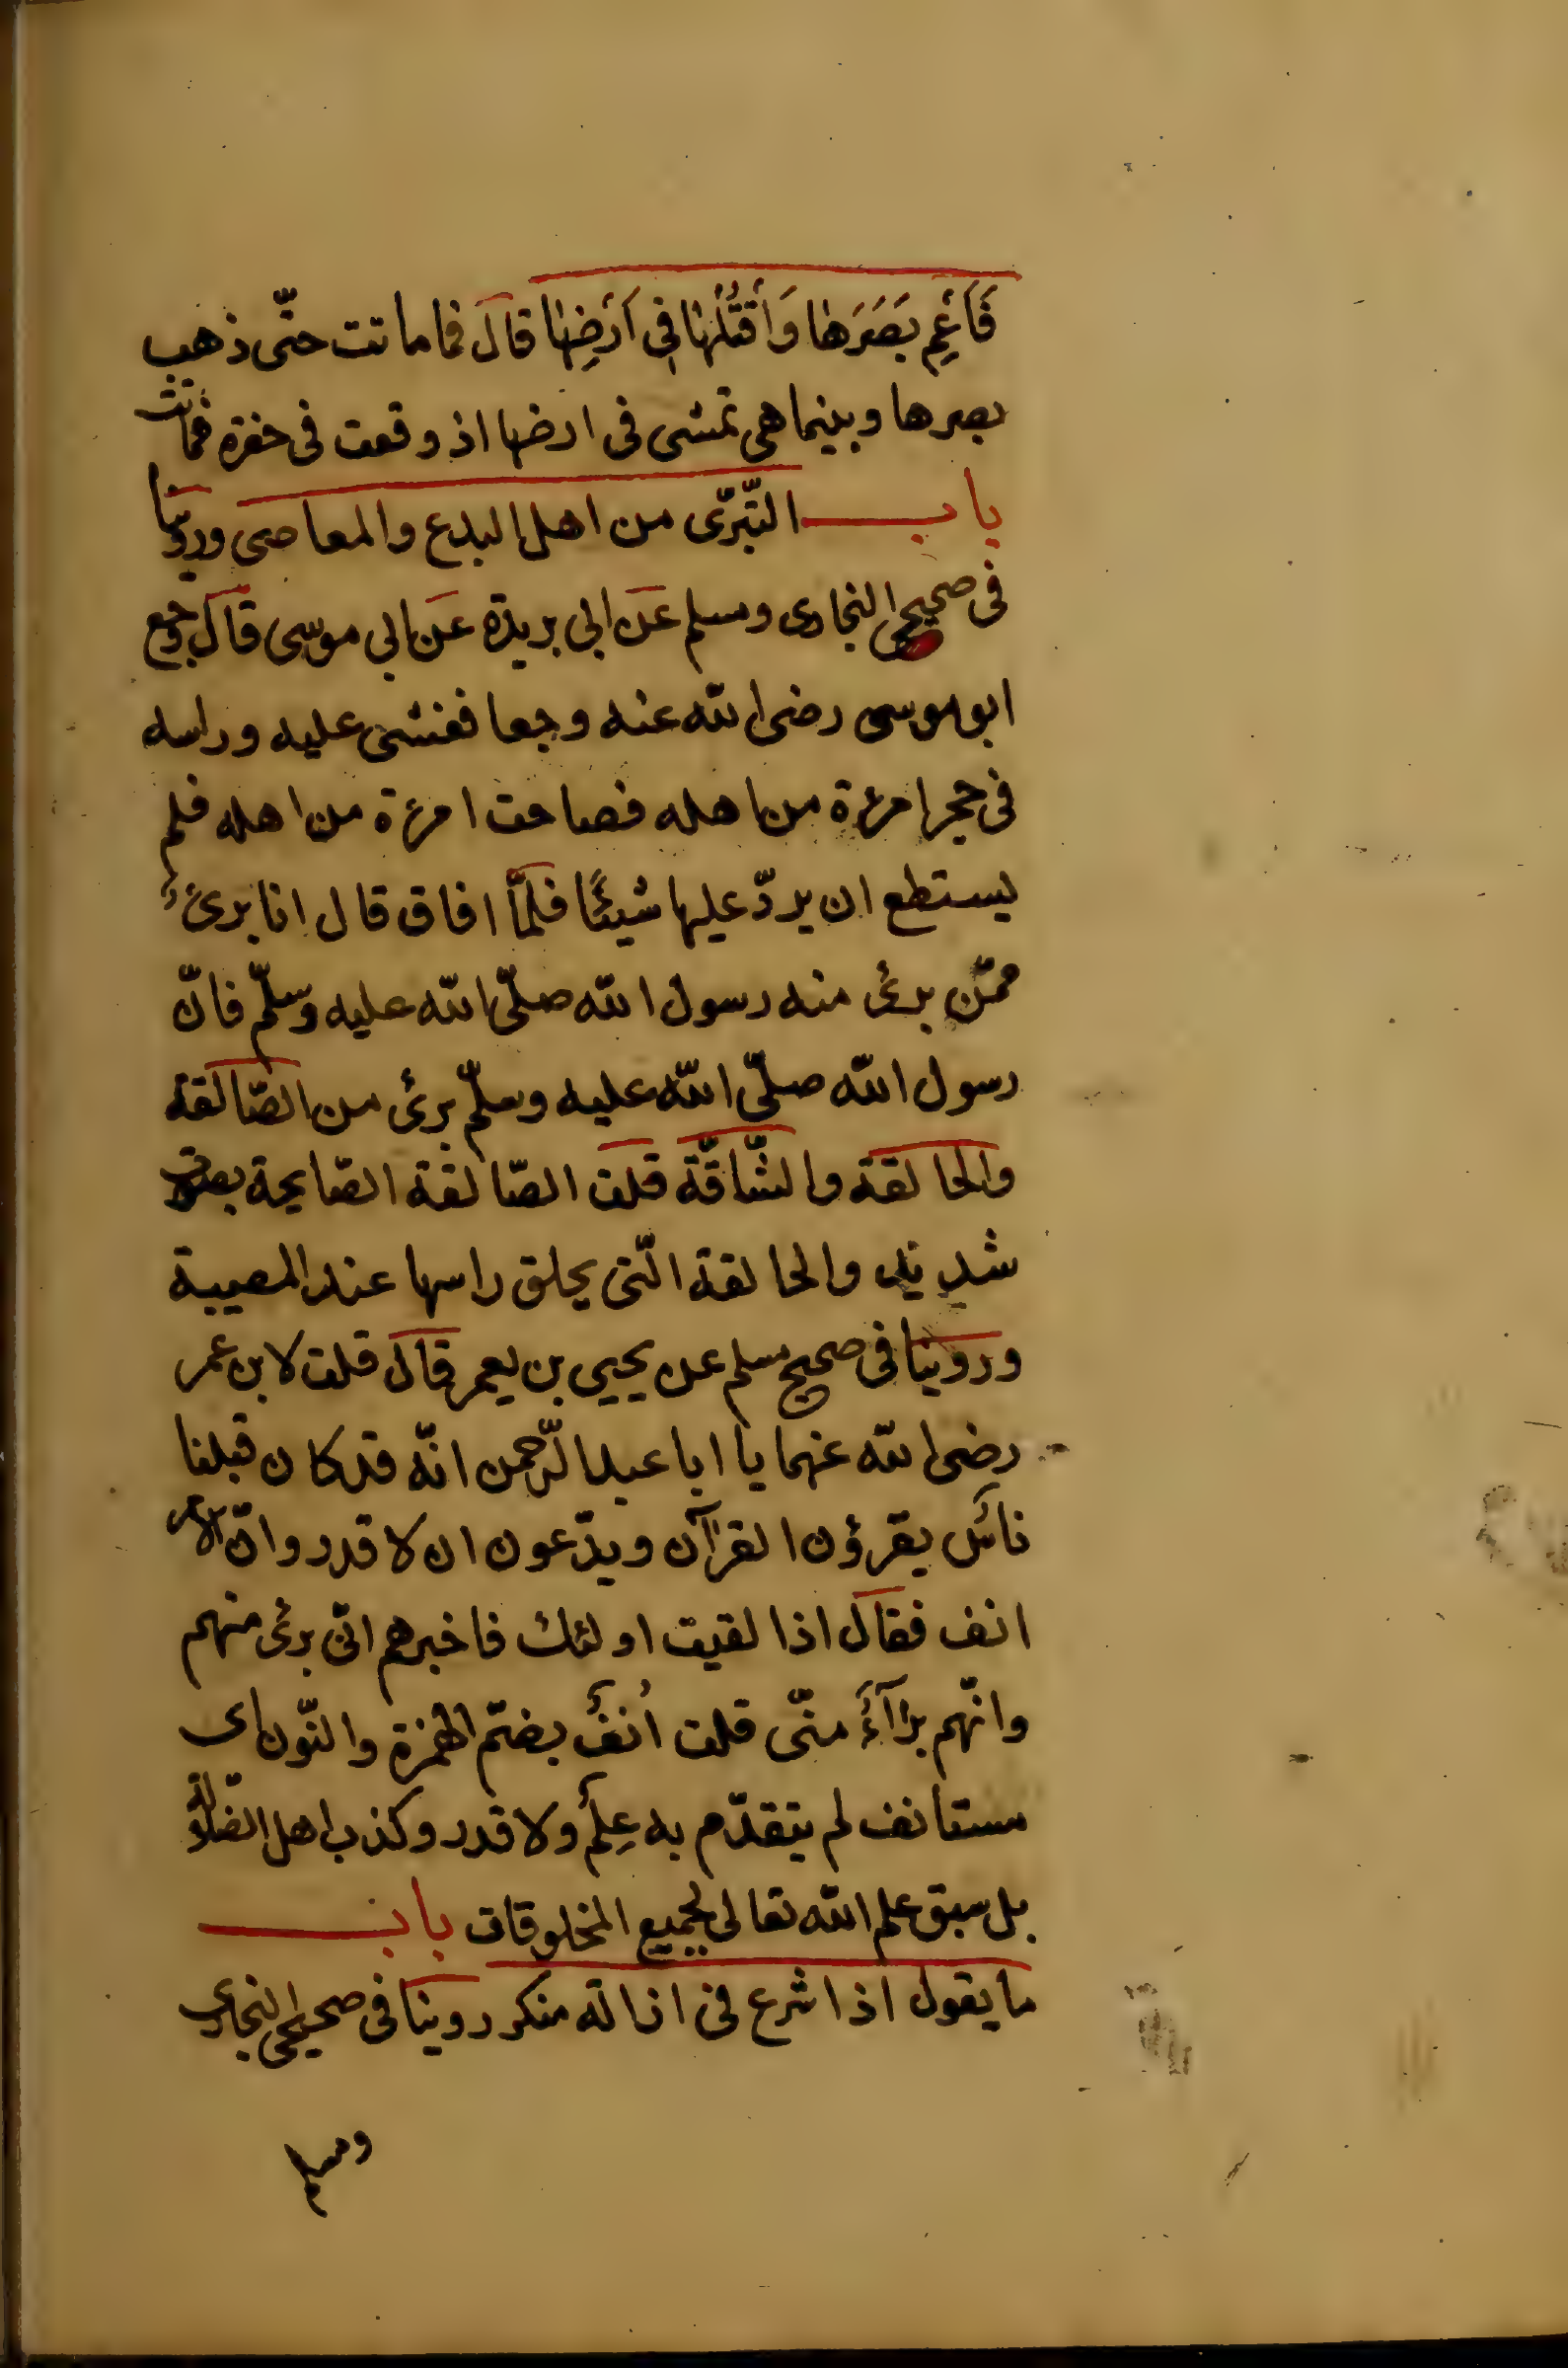 فَأَعْمِ بَصَرَهَا وَأَقْتُلْهَا فِي أَرْضِهَا قال فما ماتت حتّى ذهب
بصرها وبينما هي تمشى فى ارضها اذ وقعت فى حفرة فماتت
باب التّبرّى من اهل البدع والمعاصى وروينا
فى صحيحى البخارى ومسلم عن ابى بريدة عن ابى موسى قال وجع
ابو موسى رضى الله عنه وجعا فغشى عليه وراسه
فى حجر امرءة من اهله فصاحت امرءة من اهله فلم
يستطع ان يردّ عليها شيئًا فلمّا افاق قال انا برىءٌ
ممّن برئ منه رسول الله صلّى الله عليه وسلّم فانّ
رسول الله صلّى الله عليه وسلّم برئ من الصّالقة
والحالقة والشّاقّة قلت الصّالقة الصّايحة بصوت
شديد والحالقة الّتى يحلق راسها عند المصيبة
وروينا فى صحيح مسلم عن يحيى بن يعمر قال قلت لابن عمر
رضى الله عنهما يا ابا عبد الرّحمن انّه قد كان قبلنا
ناس يقرؤن القرآن ويدّعون ان لا قدر وانّ الامر
انف فقال اذا لقيت اولئك فاخبرهم انّى برئ منهم
وانّهم برآءٌ منّى قلت أُنفٌ بضمّ الهمزة والنّون اى
مستانف لم يتقدّم به عِلمٌ ولا قدر وكذب اهل الضّلالة
بل سبق علم الله تعالى لجميع المخلوقات باب
ما يقول اذا شرع فى ازالة منكر روينا فى صحيحى البخارى
ومسلم